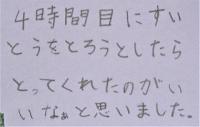 4時間目にすい
とうをとろうとしたら
とってくれたのがい
いなぁと思いました。